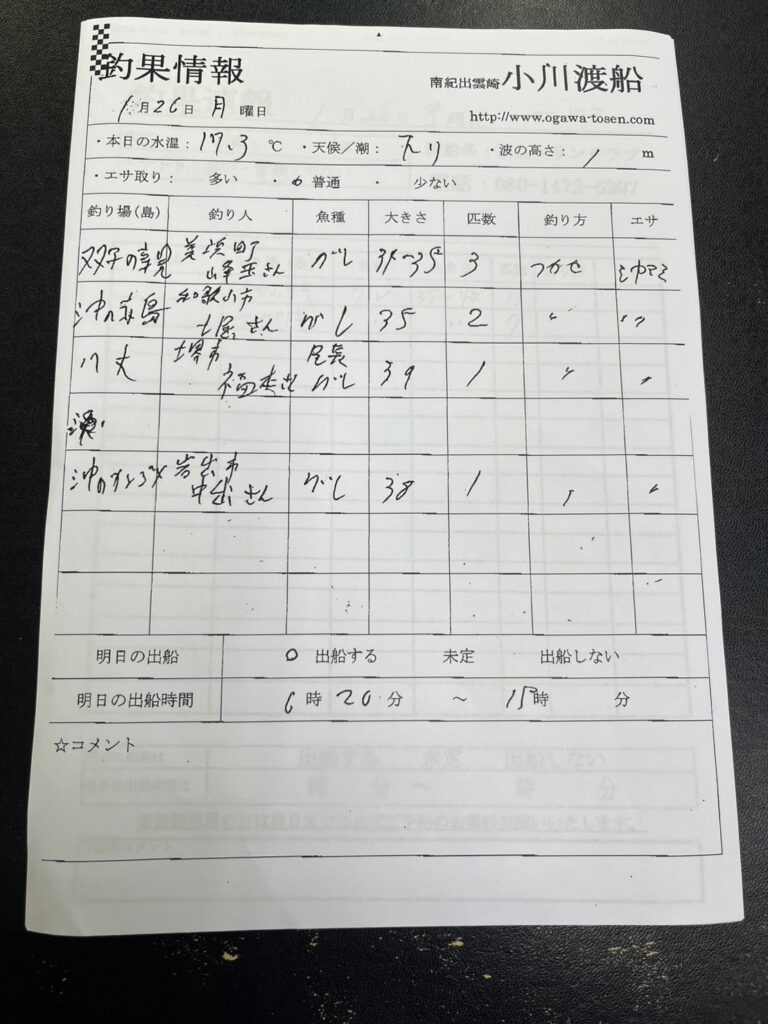 釣果情報
南紀出雲崎 小川渡船
1月26日 月 曜日
http://www.ogawa-tosen.com
・本日の水温：17.3 ℃ ・天候／潮： ・波の高さ： 1 m
・エサ取り： 多い ・ o 普通 ・ 少ない
釣り場（島） 釣り人 魚種 大きさ 匹数 釣り方 エサ
双子の 美浜町 さん グレ 31〜35 3 つかせ 沖アミ
沖の 島 和歌山市 土屋さん グレ 35 2 〃 〃
堺市 福本さん 尾長 グレ 39 1 〃 〃
沖の 岩出市 中 さん グレ 38 1 〃 〃
明日の出船 o 出船する 未定 出船しない
明日の出船時間 6時20分 ～ 15時 分
☆コメント